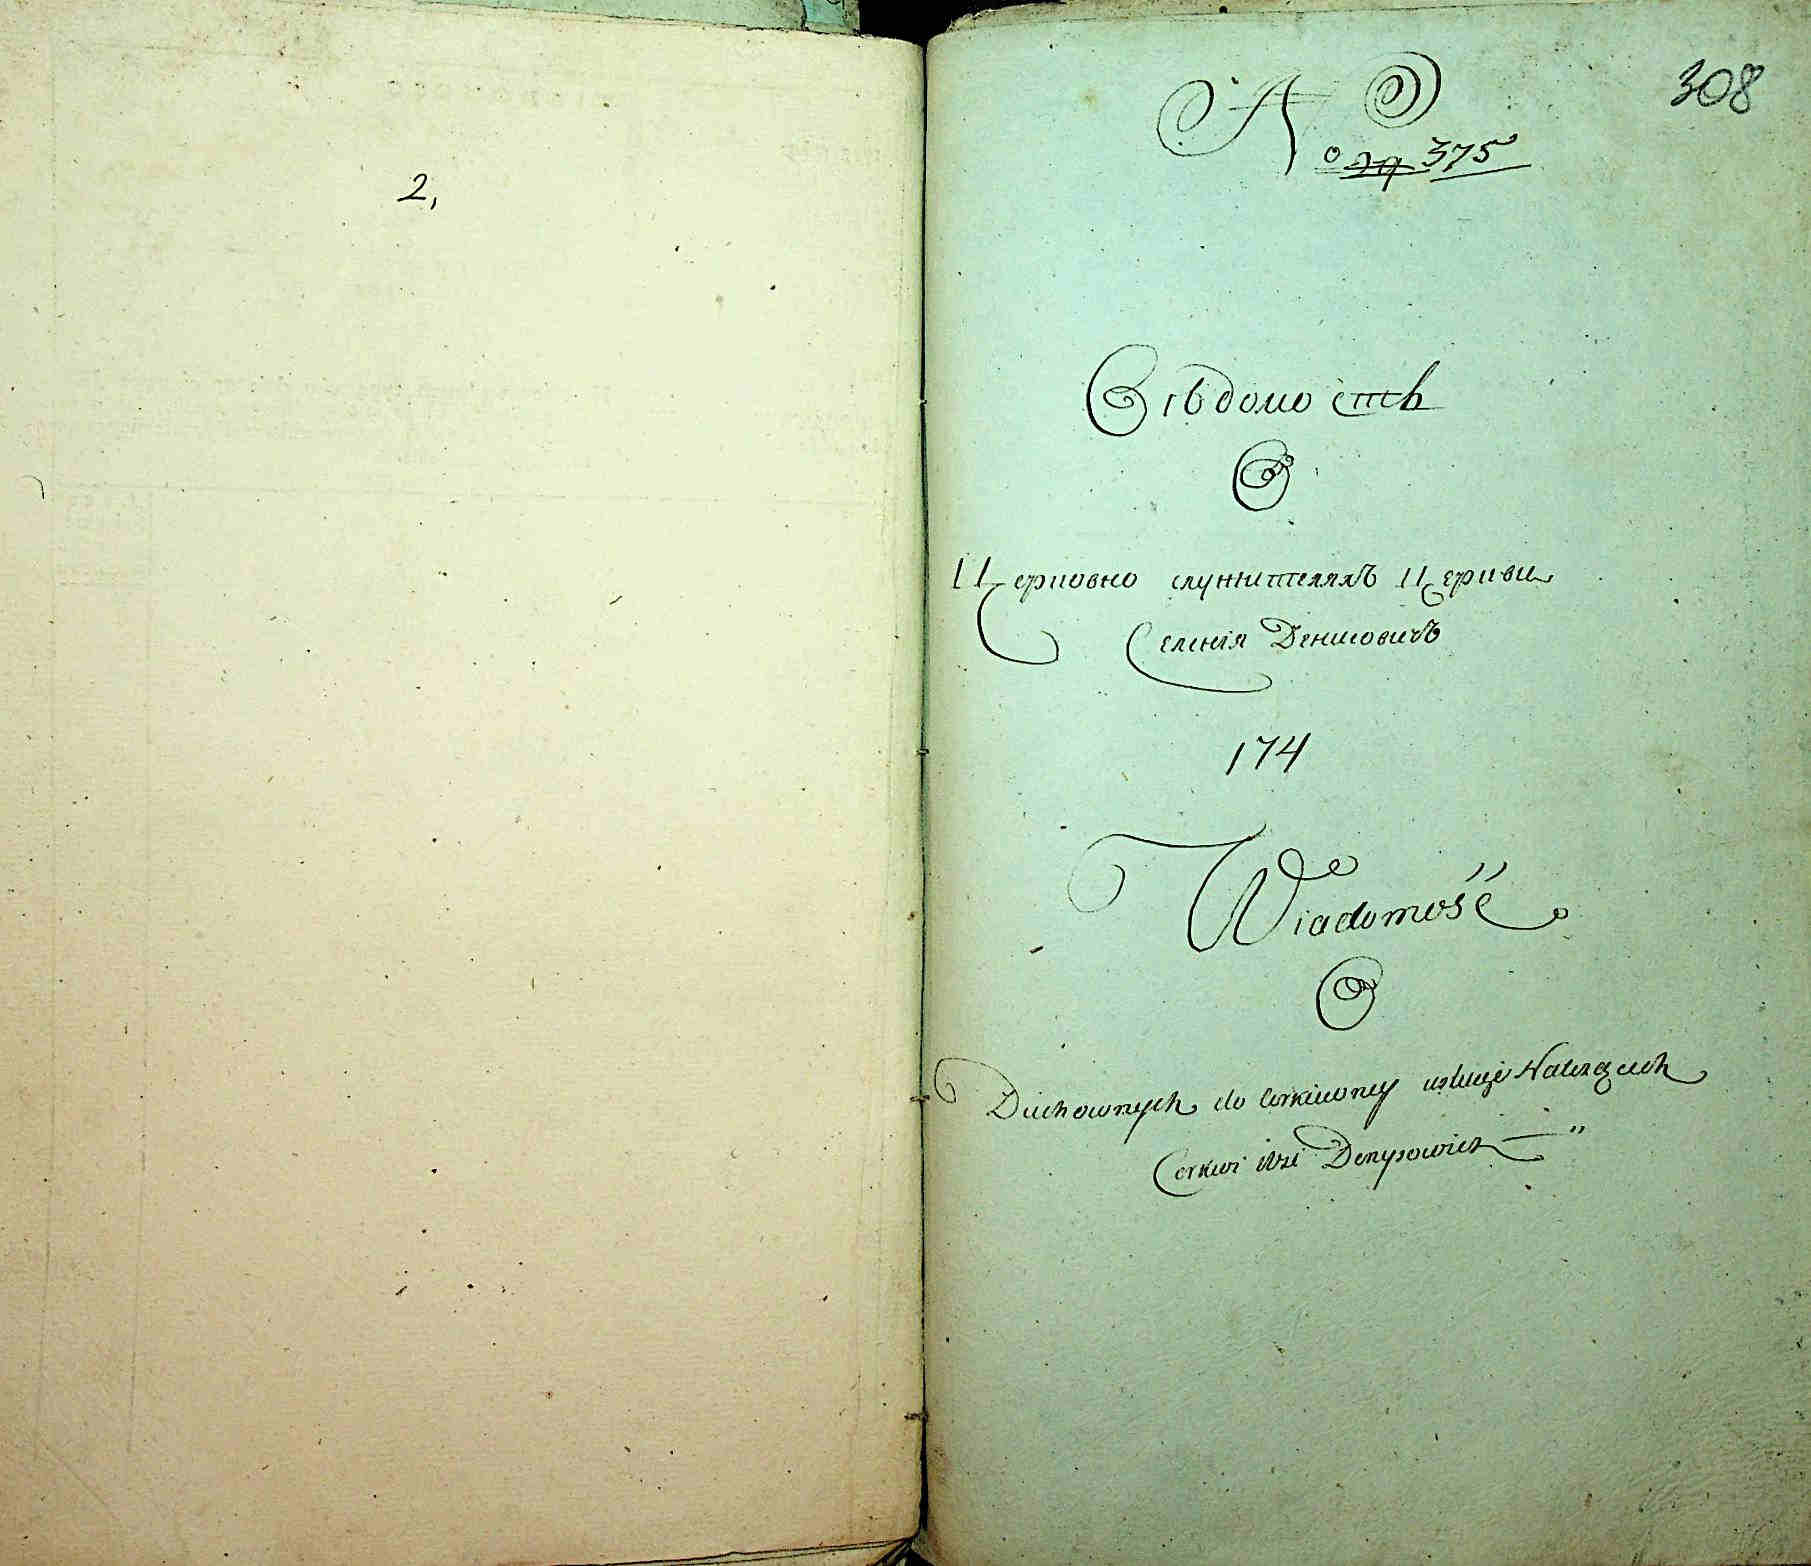 2,
308
№ 375
Вѣдомость
О
Церковно служителяхъ Церкви
Селенія Денисовичъ
174
Wiadomość
O
Duchownych do Cerkiewney usługi Należących
Cerkwi Wsi Denysowicz